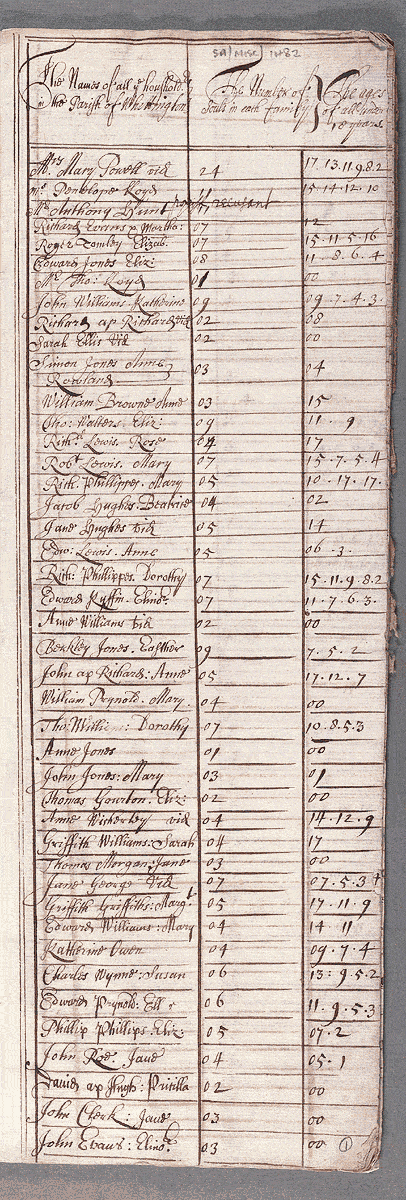 SA/MISC/1482
The Names of all ye houshold:rs The Number of The ages
in the Parish of Whittington Souls in each Family of all under
18 yeares
Mrs Mary Powell vid 24 17.13.11.9.8.2
Mrs Penelope Loyd 11 15.14.12.10
Mr Anthony Hunt recusant
Richard Evans p Martha: 07 12
Roger Tomley Elizab: 07 15.11.5.16
Edward Jones Eliz: 08 11.8.6.4
Mr Tho: Loyd 01 00
John Williams Katherine 09 09.7.4.3.
Richard ap Richard vid 02 08
Sarah Ellis vid 02 00
Simon Jones Anne 03 04
Rowland
William Browne Anne 03 15
Tho: Walters. Eliz: 09 11.9
Rich: Lewis. Rose 04 17
Robt Lewis. Mary 07 15.7.5.4
Rich: Phillippes. Mary 05 10.17.17.
Jacob Hughes. Beatrice 04 02
Jane Hughes vid 05 14
Edw: Lewis. Anne 05 06.3.
Rich: Phillippes. Dorothy 07 15.11.9.8.2
Edward Kyffin. Elinor 07 11.7.6.3.
Anne Williams vid 02 00
Berkley Jones. Easther 09 7.5.2
John ap Richard: Anne 05 17.12.7
William Reynold. Mary 04 00
Tho: William: Dorothy 07 10.8.5.3
Anne Jones 01 00
John Jones: Mary 03 01
Thomas Gourton. Eliz: 02 00
Anne Witherley vid 04 14.12.9
Griffith Williams: Sarah 04 17
Thomas Morgan: Jane 03 00
Jane George vid 07 07.5.3
Griffith Griffiths: Margt 05 17.11.9
Edward Williams: Mary 04 14.11
Katherine Owen 04 09.7.4
Charles Wynne: Susan 06 13:9.5.2
Edward Reynold: 06 11.9.5.3
Phillip Phillips: Eliz: 05 07.2
John Roe. Jane 04 05.1
David ap Hugh: Pricilla 02 00
John Clerk: Jane 03 00
John Evans: Elinor 03 00 1